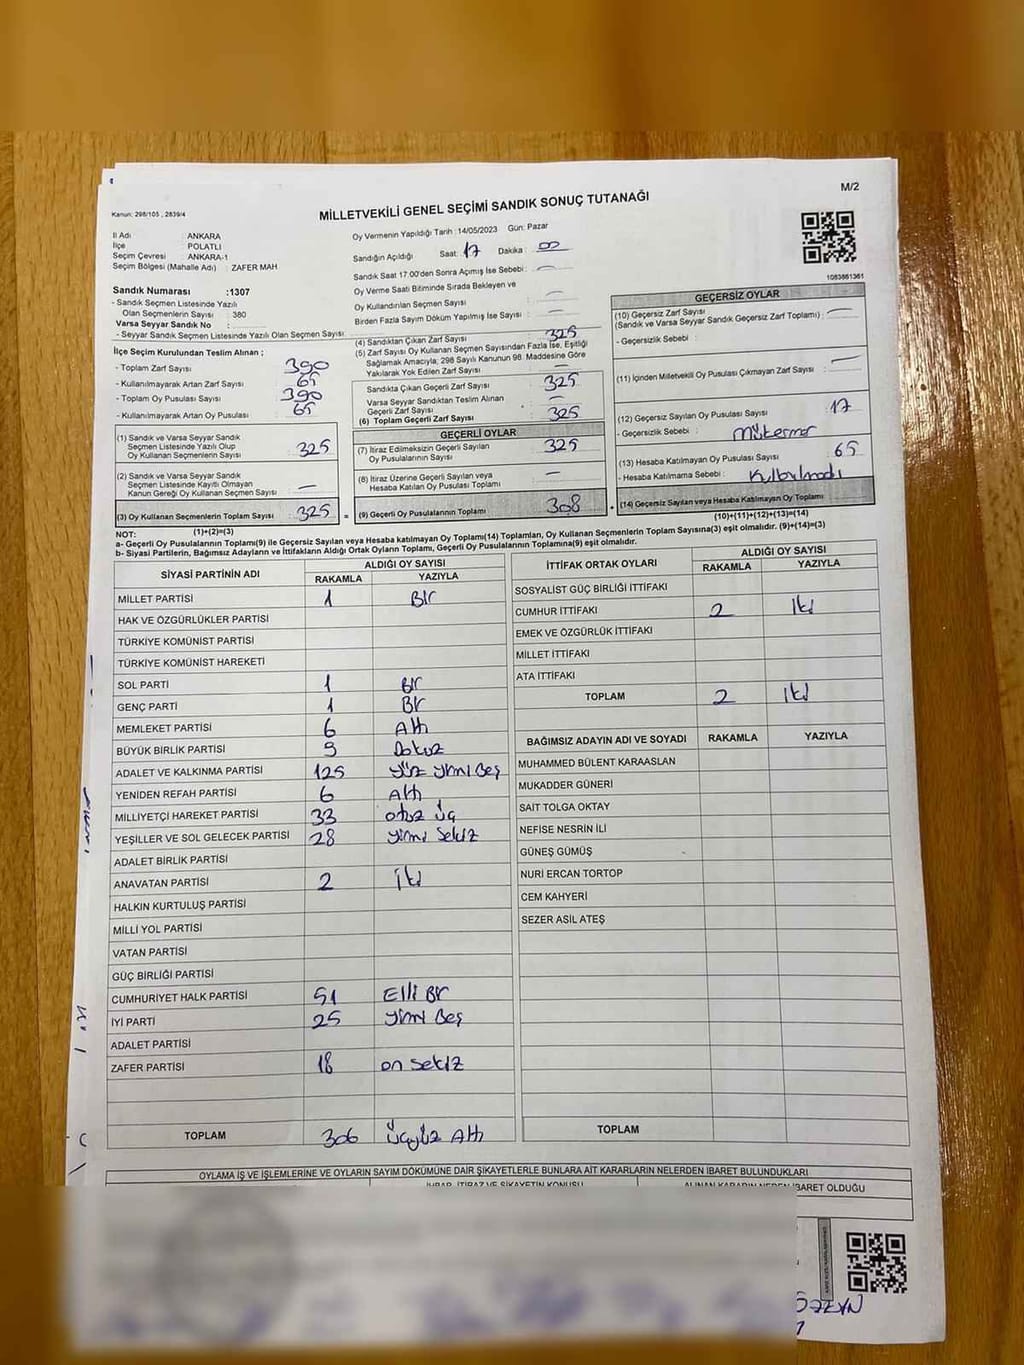 M/2
Kanun: 298/105 , 2839/4
MİLLETVEKİLİ GENEL SEÇİMİ SANDIK SONUÇ TUTANAĞI
İl Adı : ANKARA
İlçe : POLATLI
Seçim Çevresi : ANKARA-1
Seçim Bölgesi (Mahalle Adı) : ZAFER MAH
Sandık Numarası :1307
- Sandık Seçmen Listesinde Yazılı
Olan Seçmenlerin Sayısı : 380
Varsa Seyyar Sandık No :
- Seyyar Sandık Seçmen Listesinde Yazılı Olan Seçmen Sayısı:
İlçe Seçim Kurulundan Teslim Alınan ;
- Toplam Zarf Sayısı : 390
- Kullanılmayarak Artan Zarf Sayısı : 65
- Toplam Oy Pusulası : 390
- Kullanılmayarak Artan Oy Pusulası : 65
(1) Sandık ve Varsa Seyyar Sandık
Seçmen Listesinde Yazılı Olup
Oy Kullanan Seçmenlerin Sayısı : 325
(2) Sandık ve Varsa Seyyar Sandık
Seçmen Listesinde Kayıtlı Olmayan
Kanun Gereği Oy Kullanan Seçmen Sayısı : —
(3) Oy Kullanan Seçmenlerin Toplam Sayısı : 325 =
(1)+(2)=(3)
Oy Vermenin Yapıldığı Tarih :14/05/2023 Gün: Pazar
Sandığın Açıldığı Saat: 17 Dakika : 00
Sandık Saat 17:00'den Sonra Açımış İse Sebebi : —
Oy Verme Saati Bitiminde Sırada Bekleyen ve
Oy Kullandırılan Seçmen Sayısı : —
Birden Fazla Sayım Döküm Yapılmış İse Sayısı : —
(4) Sandıktan Çıkan Zarf Sayısı : 325
(5) Zarf Sayısı Oy Kullanan Seçmen Sayısından Fazla İse, Eşitliği
Sağlamak Amacıyla; 298 Sayılı Kanunun 98. Maddesine Göre
Yakılarak Yok Edilen Zarf Sayısı : —
Sandıkta Çıkan Geçerli Zarf Sayısı : 325
Varsa Seyyar Sandıktan Teslim Alınan
Geçerli Zarf Sayısı : —
(6) Toplam Geçerli Zarf Sayısı : 325
GEÇERLİ OYLAR
(7) İtiraz Edilmeksizin Geçerli Sayılan
Oy Pusulalarının Sayısı : 325
(8) İtiraz Üzerine Geçerli Sayılan veya
Hesaba Katılan Oy Pusulası Toplamı : —
(9) Geçerli Oy Pusulalarının Toplamı : 308 +
1083861361
GEÇERSİZ OYLAR
(10) Geçersiz Zarf Sayısı : —
(Sandık ve Varsa Seyyar Sandık Geçersiz Zarf Toplamı)
- Geçersizlik Sebebi :
(11) İçinden Milletvekili Oy Pusulası Çıkmayan Zarf Sayısı : —
(12) Geçersiz Sayılan Oy Pusulası Sayısı : 17
- Geçersizlik Sebebi : Mükerrer
(13) Hesaba Katılmayan Oy Pusulası Sayısı : 65
- Hesaba Katılmama Sebebi :
(14) Geçersiz Sayılan veya Hesaba Katılmayan Oy Toplamı
(10)+(11)+(12)+(13)=(14)
NOT:
a- Geçerli Oy Pusulalarının Toplamı(9) ile Geçersiz Sayılan veya Hesaba katılmayan Oy Toplamı(14) Toplamları, Oy Kullanan Seçmenlerin Toplam Sayısına(3) eşit olmalıdır. (9)+(14)=(3)
b- Siyasi Partilerin, Bağımsız Adayların ve İttifakların Aldığı Ortak Oyların Toplamı, Geçerli Oy Pusulalarının Toplamına(9) eşit olmalıdır.
SİYASİ PARTİNİN ADI ALDIĞI OY SAYISI
RAKAMLA YAZIYLA
MİLLET PARTİSİ 1 Bir
HAK VE ÖZGÜRLÜKLER PARTİSİ
TÜRKİYE KOMÜNİST PARTİSİ
TÜRKİYE KOMÜNİST HAREKETİ
SOL PARTİ 1 Bir
GENÇ PARTİ 1 Bir
MEMLEKET PARTİSİ 6 Altı
BÜYÜK BİRLİK PARTİSİ 9 Dokuz
ADALET VE KALKINMA PARTİSİ 125 yüz yirmi Beş
YENİDEN REFAH PARTİSİ 6 Altı
MİLLİYETÇİ HAREKET PARTİSİ 33 otuz üç
YEŞİLLER VE SOL GELECEK PARTİSİ 28 yirmi sekiz
ADALET BİRLİK PARTİSİ
ANAVATAN PARTİSİ 2 iki
HALKIN KURTULUŞ PARTİSİ
MİLLİ YOL PARTİSİ
VATAN PARTİSİ
GÜÇ BİRLİĞİ PARTİSİ
CUMHURİYET HALK PARTİSİ 51 Elli Bir
İYİ PARTİ 25 yirmi Beş
ADALET PARTİSİ
ZAFER PARTİSİ 18 on sekiz
TOPLAM 306 üçyüz Altı
İTTİFAK ORTAK OYLARI ALDIĞI OY SAYISI
RAKAMLA YAZIYLA
SOSYALİST GÜÇ BİRLİĞİ İTTİFAKI
CUMHUR İTTİFAKI 2 iki
EMEK VE ÖZGÜRLÜK İTTİFAKI
MİLLET İTTİFAKI
ATA İTTİFAKI
TOPLAM 2 iki
BAĞIMSIZ ADAYIN ADI VE SOYADI RAKAMLA YAZIYLA
MUHAMMED BÜLENT KARAASLAN
MUKADDER GÜNERİ
SAİT TOLGA OKTAY
NEFİSE NESRİN İLİ
GÜNEŞ GÜMÜŞ
NURİ ERCAN TORTOP
CEM KAHYERİ
SEZER ASİL ATEŞ
TOPLAM
OYLAMA İŞ VE İŞLEMLERİNE VE OYLARIN SAYIM DÖKÜMÜNE DAİR ŞİKAYETLERLE BUNLARA AİT KARARLARIN NELERDEN İBARET BULUNDUKLARI
İHBAR, İTİRAZ VE ŞİKAYETİN KONUSU ALINAN KARARIN NEDEN İBARET OLDUĞU